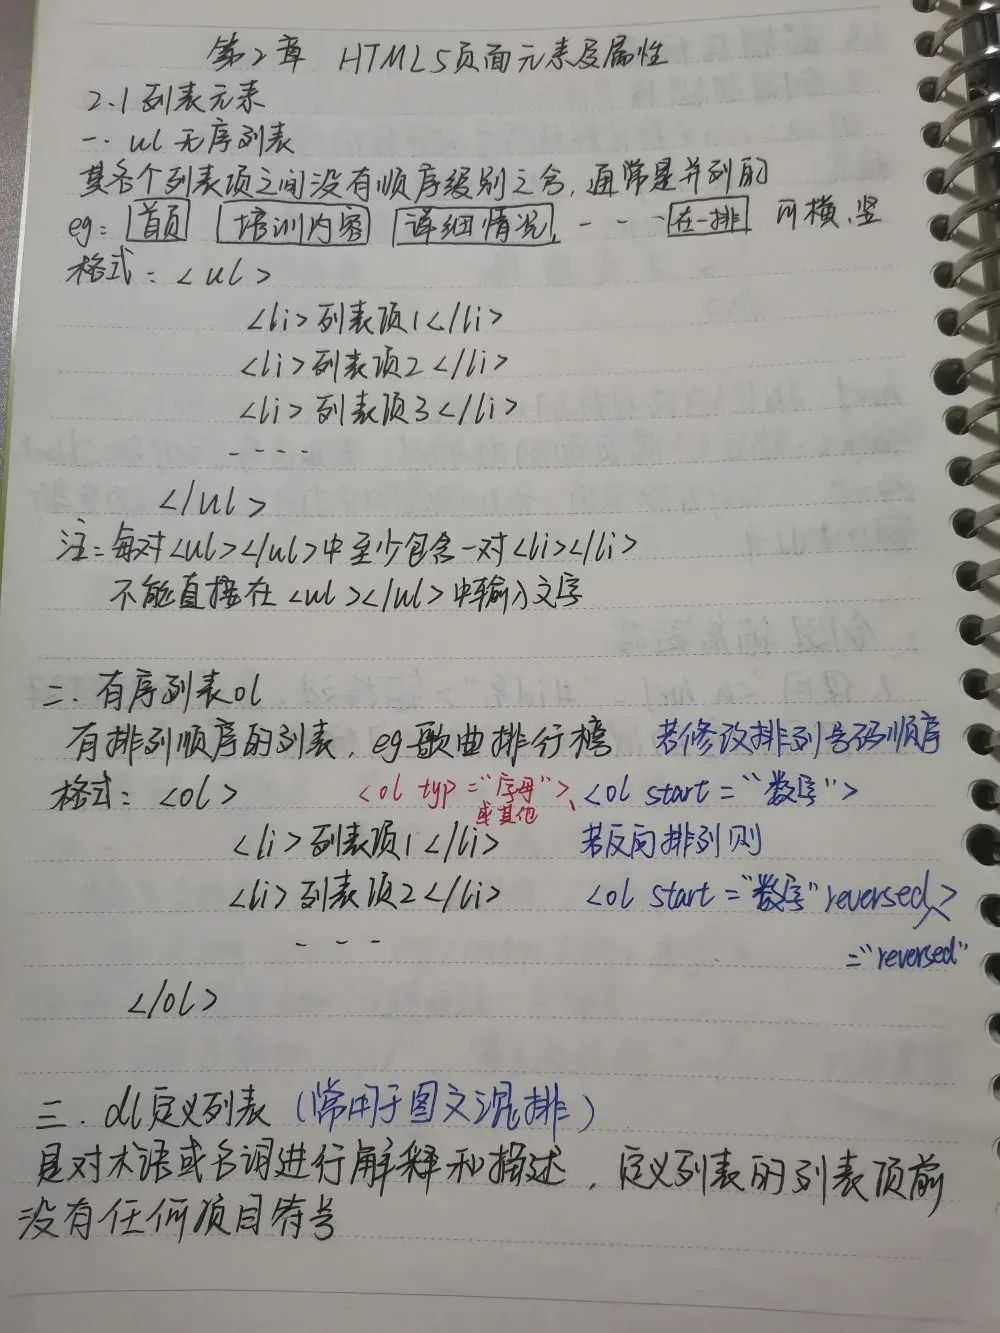 第2章 HTML5页面元素及属性
2.1 列表元素
一. ul 无序列表
其各个列表项之间没有顺序级别之分,通常是并列的
eg: 首页 培训内容 详细情况 - - - 在一排 可横、竖
格式: <ul>
<li>列表项1</li>
<li>列表项2</li>
<li>列表项3</li>
- - - -
</ul>
注:每对<ul></ul>中至少包含一对<li></li>
不能直接在<ul></ul>中输入文字
二. 有序列表ol
有排列顺序的列表, eg歌曲排行榜 若修改排列号码顺序
格式: <ol> <ol typ="字母">、 <ol start="数字">
或其他
<li>列表项1</li> 若反向排列则
<li>列表项2</li> <ol start="数字" reversed>
- - - ="reversed"
</ol>
三. dl定义列表(常用于图文混排)
是对术语或名词进行解释和描述,定义列表的列表项前
没有任何项目符号